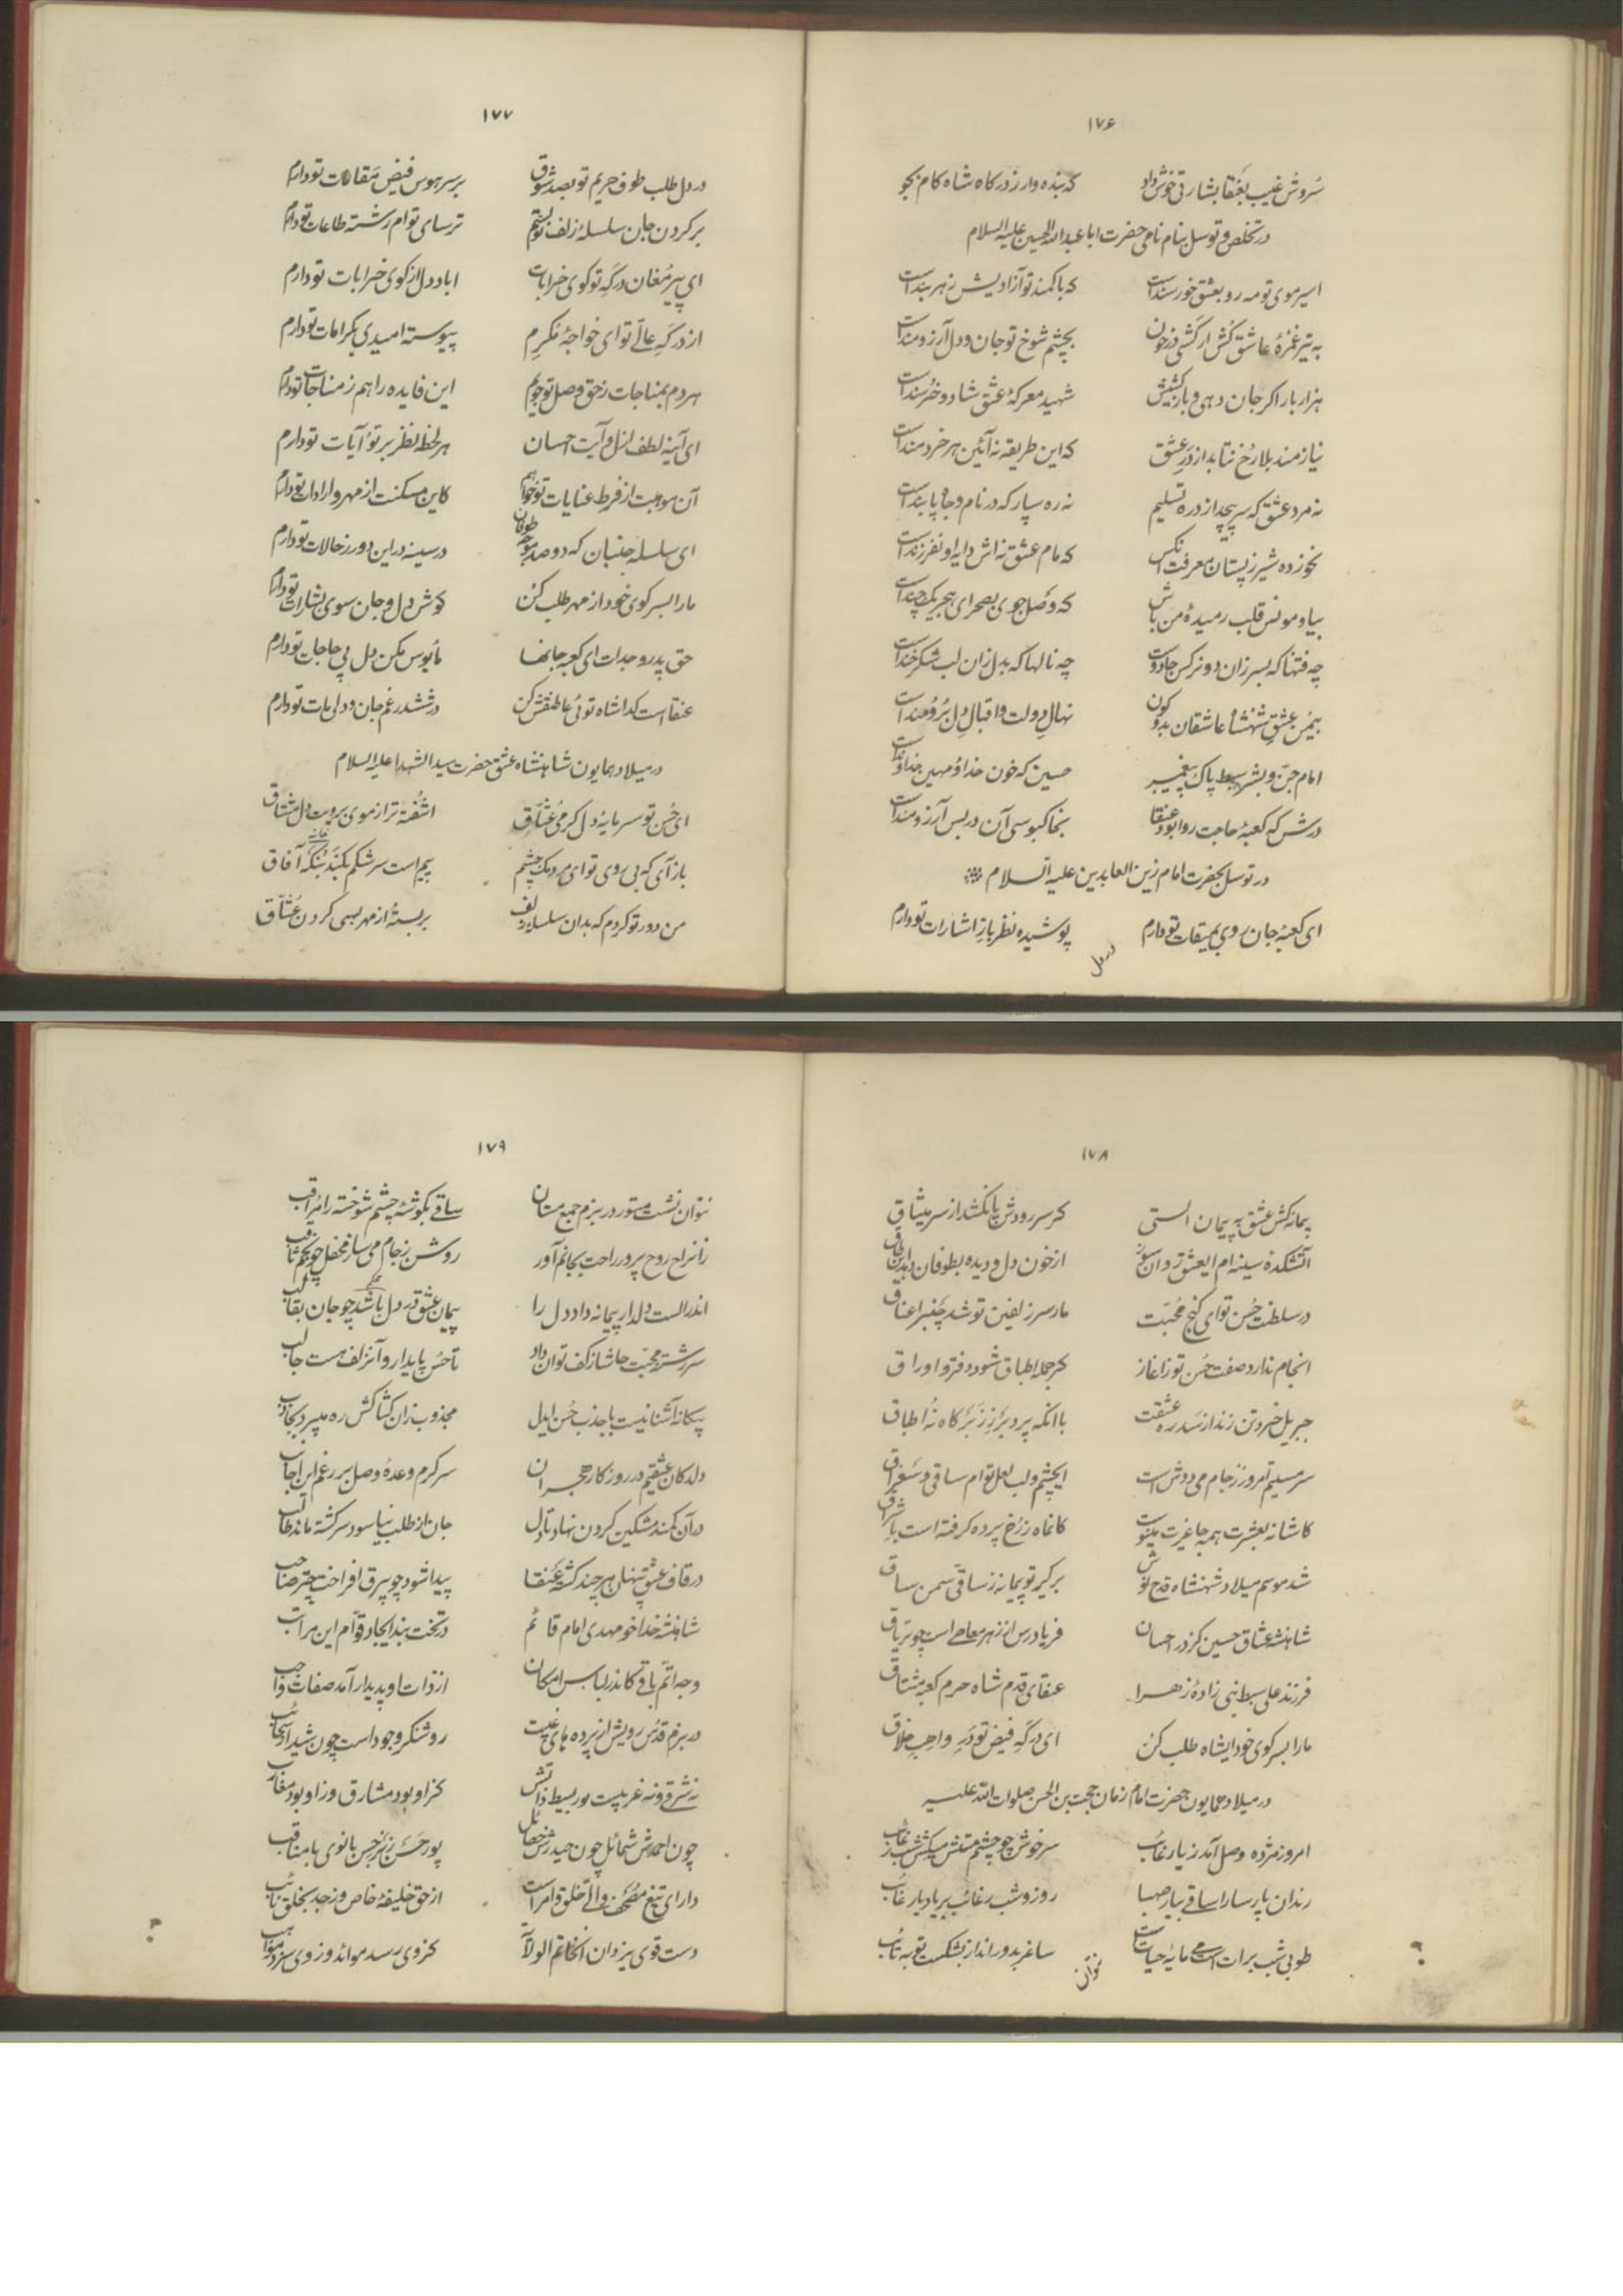 ۱۷۶
سُروش غیب بعَنقا بشارتی خوش داد که بنده وار ز درکاه شاه کام بجو
در تخلص و توسل بنام نامی حضرت ابا عبدالله الحسین علیه السلام
اسیر موی تو مه رو بعشق خورسند است که با کمند تو آزادیش ز هر بند است
به تیر غمزهٔ عاشق کُش ار کَشی در خون بچشم شوخ تو جان و دل آرزومند است
هزار بار اکر جان دهی و باز کشیش شهید معرکهٔ عشق شاد و خرُسند است
نیازمند بلا رُخ نتابد از درِ عشق که این طریقه نه آئین هر خردمند است
نه مرد عشق که سر پیچد از ره تسلیم نه ره سپار که در نام و جاه پابند است
نخورده شیر ز پستان معرفت آنکس که مام عشق نه اش دایه او نفرزند است
بیا و مونس قلب رمیدهٔ من باش که وصل جوی بصحرای هجر یکچند است
چه فتنها که بسر زان دو نرکس جادوست چه نالها که بدل زان لب شکرخند است
بیُمن عشقِ شهنشاه عاشقان بدو کون نهال دولت و اقبال دل بُرومند است
امام جنّ و بشر سبط پاک پیغمبر حسین که خون خدا و مهین خداوند است
درش که کعبهٔ حاجت روا بود عنقا بخاکبوسی آن در بس آرزومند است
در توسل بحضرت امام زین العابدین علیه السلام
ای کعبهٔ جان روی بمیقات تو دارم پوشیده نظر باز اشارات تو دارم
در دل
۱۷۷
در دل طلب طوف حریم تو بصد شوق بر سر هوس فیض مَقامات تو دارم
بر کردن جان سلسلهٔ زلف تو بستم ترسای توام رشته طاعات تو دارم
ای پیر مُغان درکَهِ تو کوی خرابات اباد دل از کوی خرابات تو دارم
از درکَهِ عالی تو ای خواجهٔ مُکرِم پیوسته امیدی بکرامات تو دارم
هر دم بمناجات ز حق وصل تو جویم این فایده را هم ز مناجات تو دارم
ای آینه لطف ازل و آیت احسان هر لحظه نظر بر تو و آیات تو دارم
آن موهبت از فرط عنایات تو خواهم کاین مسکنت از مهر و ارادات تو دارم
ای سلسله جنبان که دو صد موجه طوفان در سینه در این دور ز حالات تو دارم
ما را بسر کوی خود از مهر طلب کن کوش دل و جان سوی بشارات تو دارم
حق پدر و جدات ای کعبه جانها مأیوس مکن دل پی حاجات تو دارم
عنقا است کدا شاه توئی عاطفتش کن در ششدر غم جان و دلی مات تو دارم
در میلاد همایون شاهنشاه عشق حضرت سید الشهدا علیه السلام
ای حُسن تو سرمایهٔ دل کرمی عُشّاق اشُفته تر از موی برویت دل مشتاق
باز آی که بی روی تو ای مردمک چشم بیم است سرشکم بکَند بُنکَه آفاق
من دور تو کردم که بدان سلسله زلف بر بستهٔ از مهر بسی کردن عُشّاق
۱۷۸
پیمانه کش عشق به پیمان الستی کر سر رودش پا نکشد از سر میثاق
آتشکدهٔ سینه ام ایعشق روان سوز از خون دل و دیده بطوفان
در سلطنت حُسن تو ای کنج محُبّت مار سر زلفین تو شد چنبر اعناق
انجام ندارد صفت حُسن تو ز اغاز کر جمله اطباق شود دفتر و اوراق
جبریل خرد تن زند از سدره عشقت با انکه پرد برَ زِ زبَر کاه نُه اطباق
سرمستیم امروز ز جام می دوش است ایچشم و لب لعل توام ساقی و
کاشانه بعشرت همه جا غیرت مینوست کانماه ز رُخ پرده کرفته است باشراق
شد موسم میلاد شهنشاه قدح نوش بر کیر تو پیمانه ز ساقیّ سمن ساق
شاهنشه عشاق حسین کز در احسان فریادرس از زهر معاصی است چو تریاق
فرزند علی سبط نبی زادهٔ زهرا عنقای قدم شاه حرم کعبه مشتاق
ما را بسر کوی خود ایشاه طلب کن ای درکَه فیض تو دَرِ واهب خلاق
در میلاد همایون حضرت امام زمان حجت بن الحسن صلوات الله علیه
امروز مژده وصل آمد ز یار غائب سرخوش چو چشم مستش میکش شب رغائب
رندان پارسا را ساقی بیار صهبا روز و شب رغائب بر یاد یار غائب
طوبی شب برات است می مایه حیات است ساغر بدور انداز بشکست توبه تائب
نتوان
۱۷۹
نتوان نشست مستور در بزم جمع مستان ساقی بکوشهٔ چشم شو خسته را مُراقب
زانراح روح پرور راحت بجانم آور روشن ز جام می ساز محفل چو نجم ثاقب
اندر الست دلدار پیمانه داد دل را پیمان عشق در دل باشد چو جان بقالب
سررشته محبّت حاشا ز کف توان داد تا حُسن پایدار و آنزلف هست جالب
بیکانه آشنا نیست با جذب حُسن ایدل مجذوب زان کشاکش ره میبرد بجاذب
دلدادکان عشقیم در روزکار هجران سرکرم وعدهٔ وصل بر رغم این اجانب
در آن کمند مشکین کردن نهاد تا دل جان از طلب نیاسود سرکشته ماند طالب
در قاف عشق پنهان هر چند کشته عنقا پیدا شود چو بیرق افراخت صاحب
شاهنشه خدا خو مهدی امام قائم در تخت بند ایجاد قوّام این مراتب
وجه اتّم باقی کاندر لباس امکان از ذات او پدیدار آمد صفات واجب
در بزم قدُس رویش از پرده های غیبت روشنکر وجود است چون شید از سحائب
نه شرقی و نه غربیست نور بسیط ذاتش کز او بود مشارق وز او بود مغارب
چون احمدش شمائل چون حیدرش خصائل پور حَسَن ز نرجس بانوی با مناقب
دارای تیغ و مُصحَف والّی خلق و امر است از حق خلیفهٔ خاص وز جد بخلق نائب
دست قوی یزدان آنخاتم الولآیه کز وی رسد موائد وز وی سزد مواهب